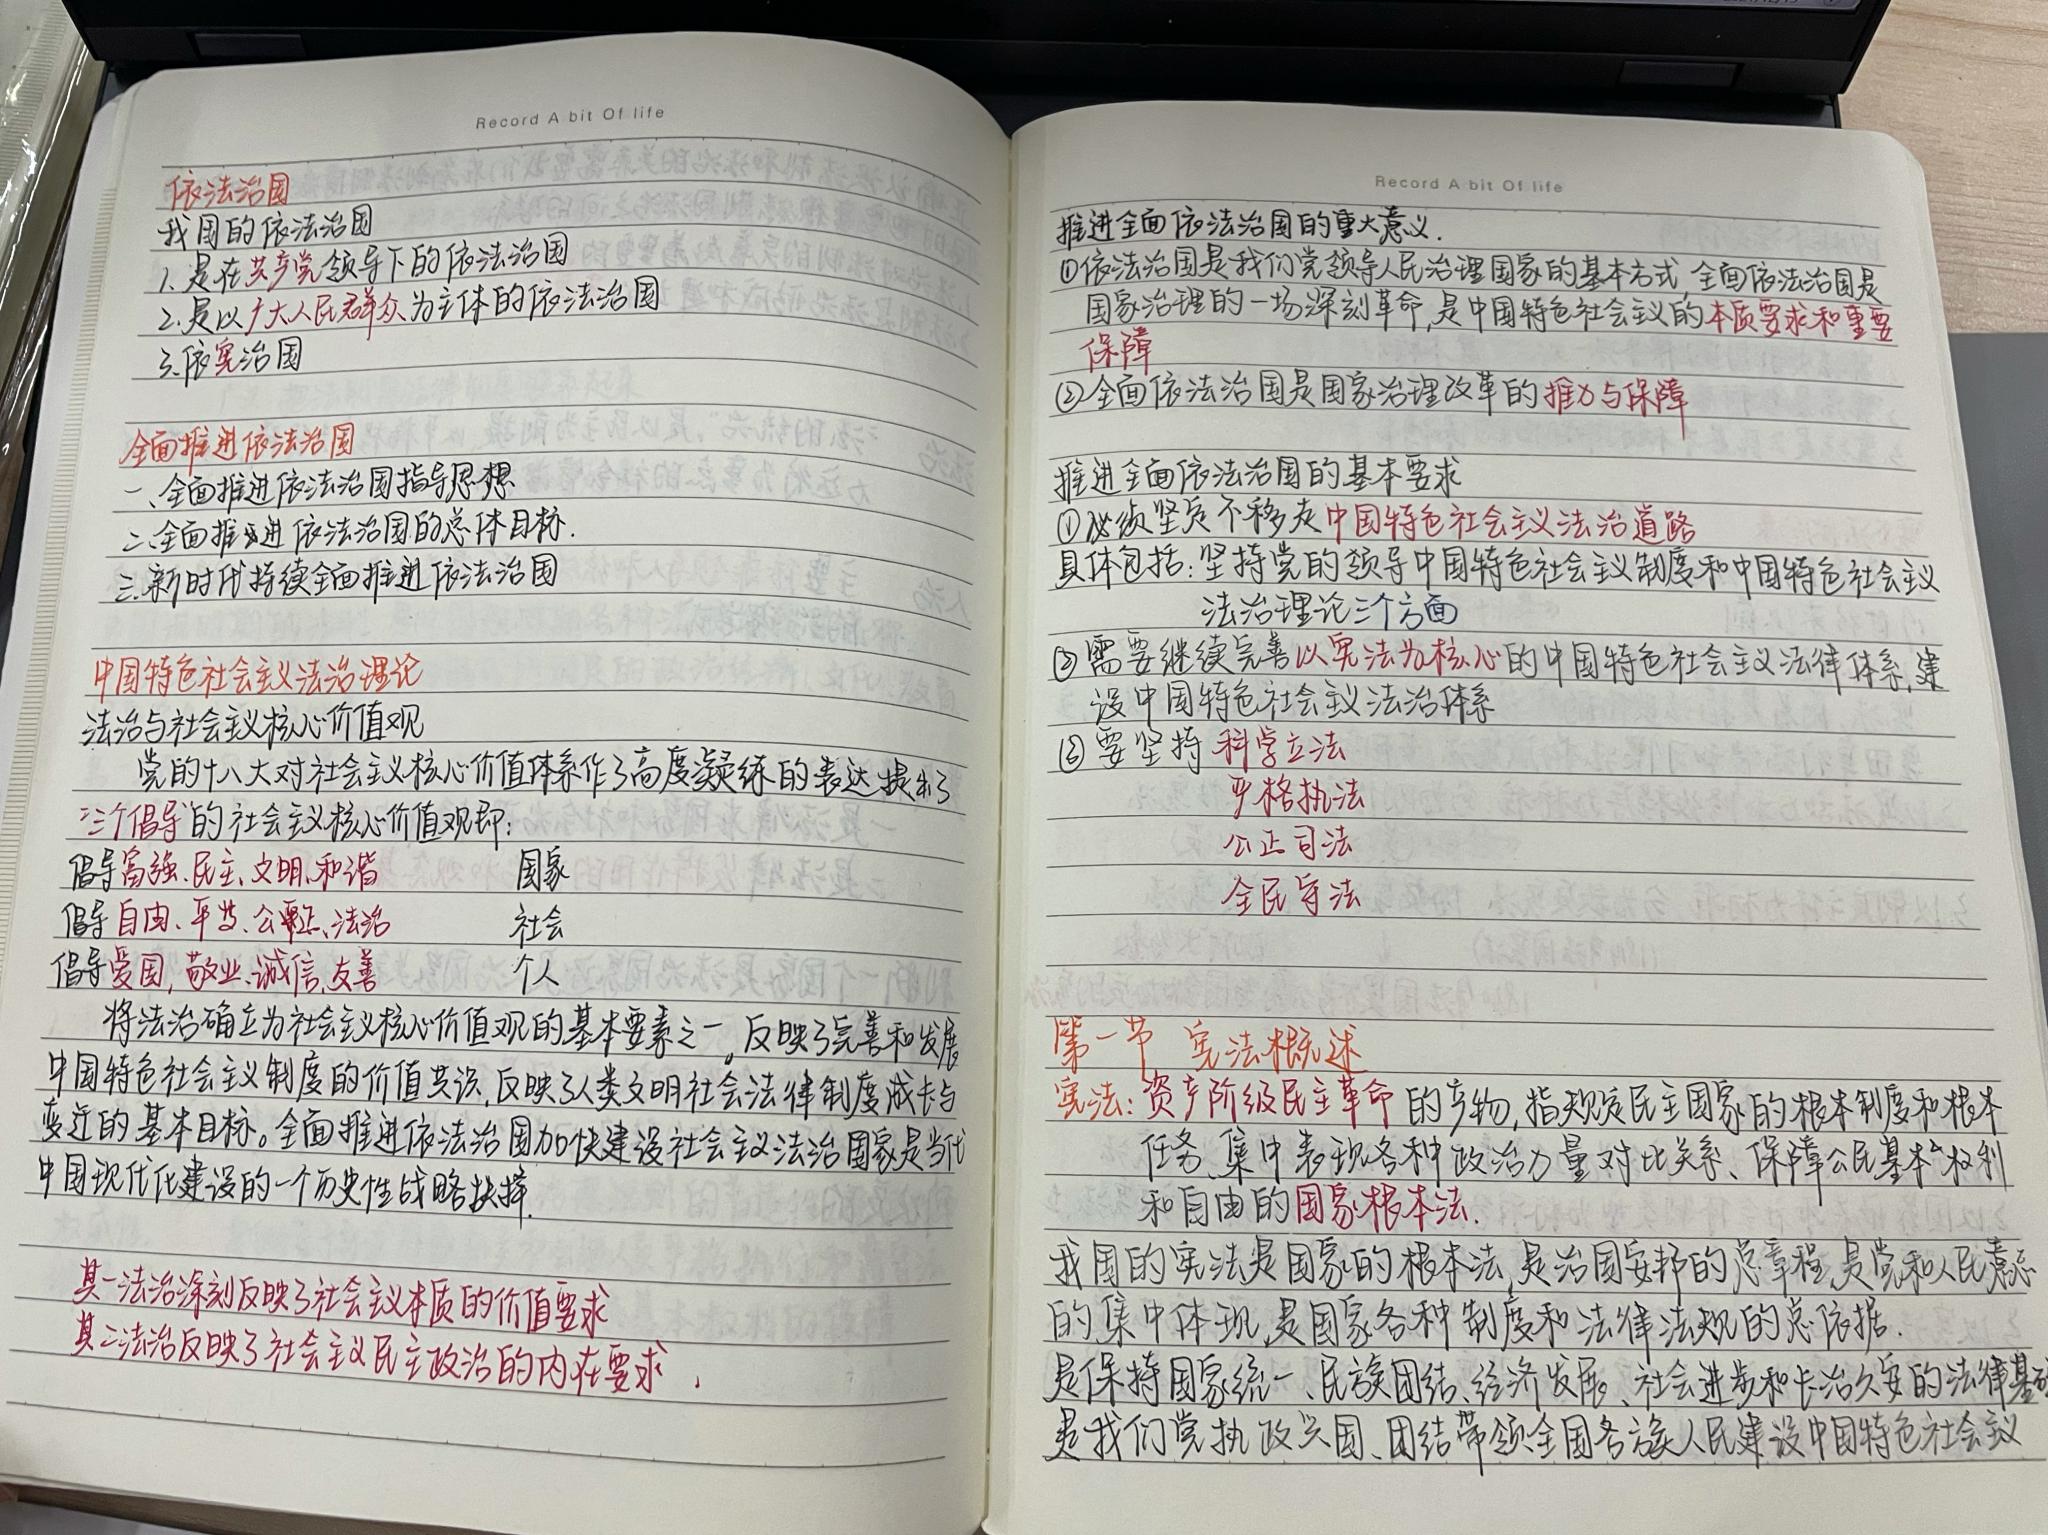 Record A bit Of life
依法治国
我国的依法治国
1.是在共产党领导下的依法治国
2.是以广大人民群众为主体的依法治国
3.依宪治国
全面推进依法治国
一、全面推进依法治国指导思想
二、全面推进依法治国的总体目标.
三、新时代持续全面推进依法治国
中国特色社会主义法治理论
法治与社会主义核心价值观
党的十八大对社会主义核心价值体系作了高度凝练的表达,提出了
"三个倡导"的社会主义核心价值观即:
倡导富强、民主、文明、和谐 国家
倡导自由、平等、公正、法治 社会
倡导爱国,敬业、诚信、友善 个人
将法治确立为社会主义核心价值观的基本要素之一。反映了完善和发展
中国特色社会主义制度的价值共识,反映了人类文明社会法律制度成长与
变迁的基本目标。全面推进依法治国加快建设社会主义法治国家是当代
中国现代化建设的一个历史性战略抉择.
其一法治深刻反映了社会主义本质的价值要求
其二法治反映了社会主义民主政治的内在要求.
Record A bit Of life
推进全面依法治国的重大意义.
①依法治国是我们党领导人民治理国家的基本方式,全面依法治国是
国家治理的一场深刻革命,是中国特色社会主义的本质要求和重要
保障
②全面依法治国是国家治理改革的推力与保障
推进全面依法治国的基本要求
①必须坚定不移走中国特色社会主义法治道路
具体包括:坚持党的领导中国特色社会主义制度和中国特色社会主义
法治理论三个方面
②需要继续完善以宪法为核心的中国特色社会主义法律体系,建
设中国特色社会主义法治体系
③要坚持科学立法
严格执法
公正司法
全民守法
第一节 宪法概述
宪法:资产阶级民主革命的产物,指规定民主国家的根本制度和根本
任务、集中表现各种政治力量对比关系、保障公民基本权利
和自由的国家根本法.
我国的宪法是国家的根本法,是治国安邦的总章程,是党和人民意志
的集中体现,是国家各种制度和法律法规的总依据.
是保持国家统一、民族团结、经济发展、社会进步和长治久安的法律基础
是我们党执政兴国、团结带领全国各族人民建设中国特色社会主义